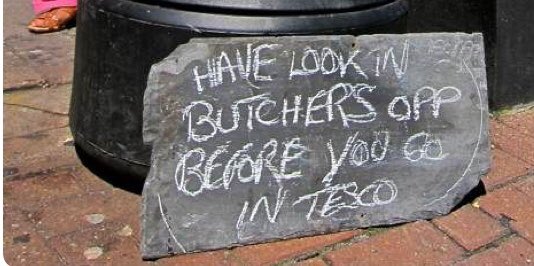 HAVE LOOK IN
BUTCHERS OPP
BEFORE YOU GO
IN TESCO